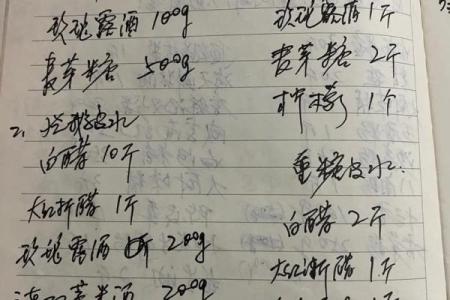 玫瑰露酒 100g
麦芽糖 500g
2、
皮水
白醋 10斤
大红浙醋 1斤
玫瑰露酒 200g
酒 200g
玫瑰露酒 1斤
麦芽糖 2斤
柠檬 1个
重糖皮水
白醋 2斤
大红浙醋 1斤